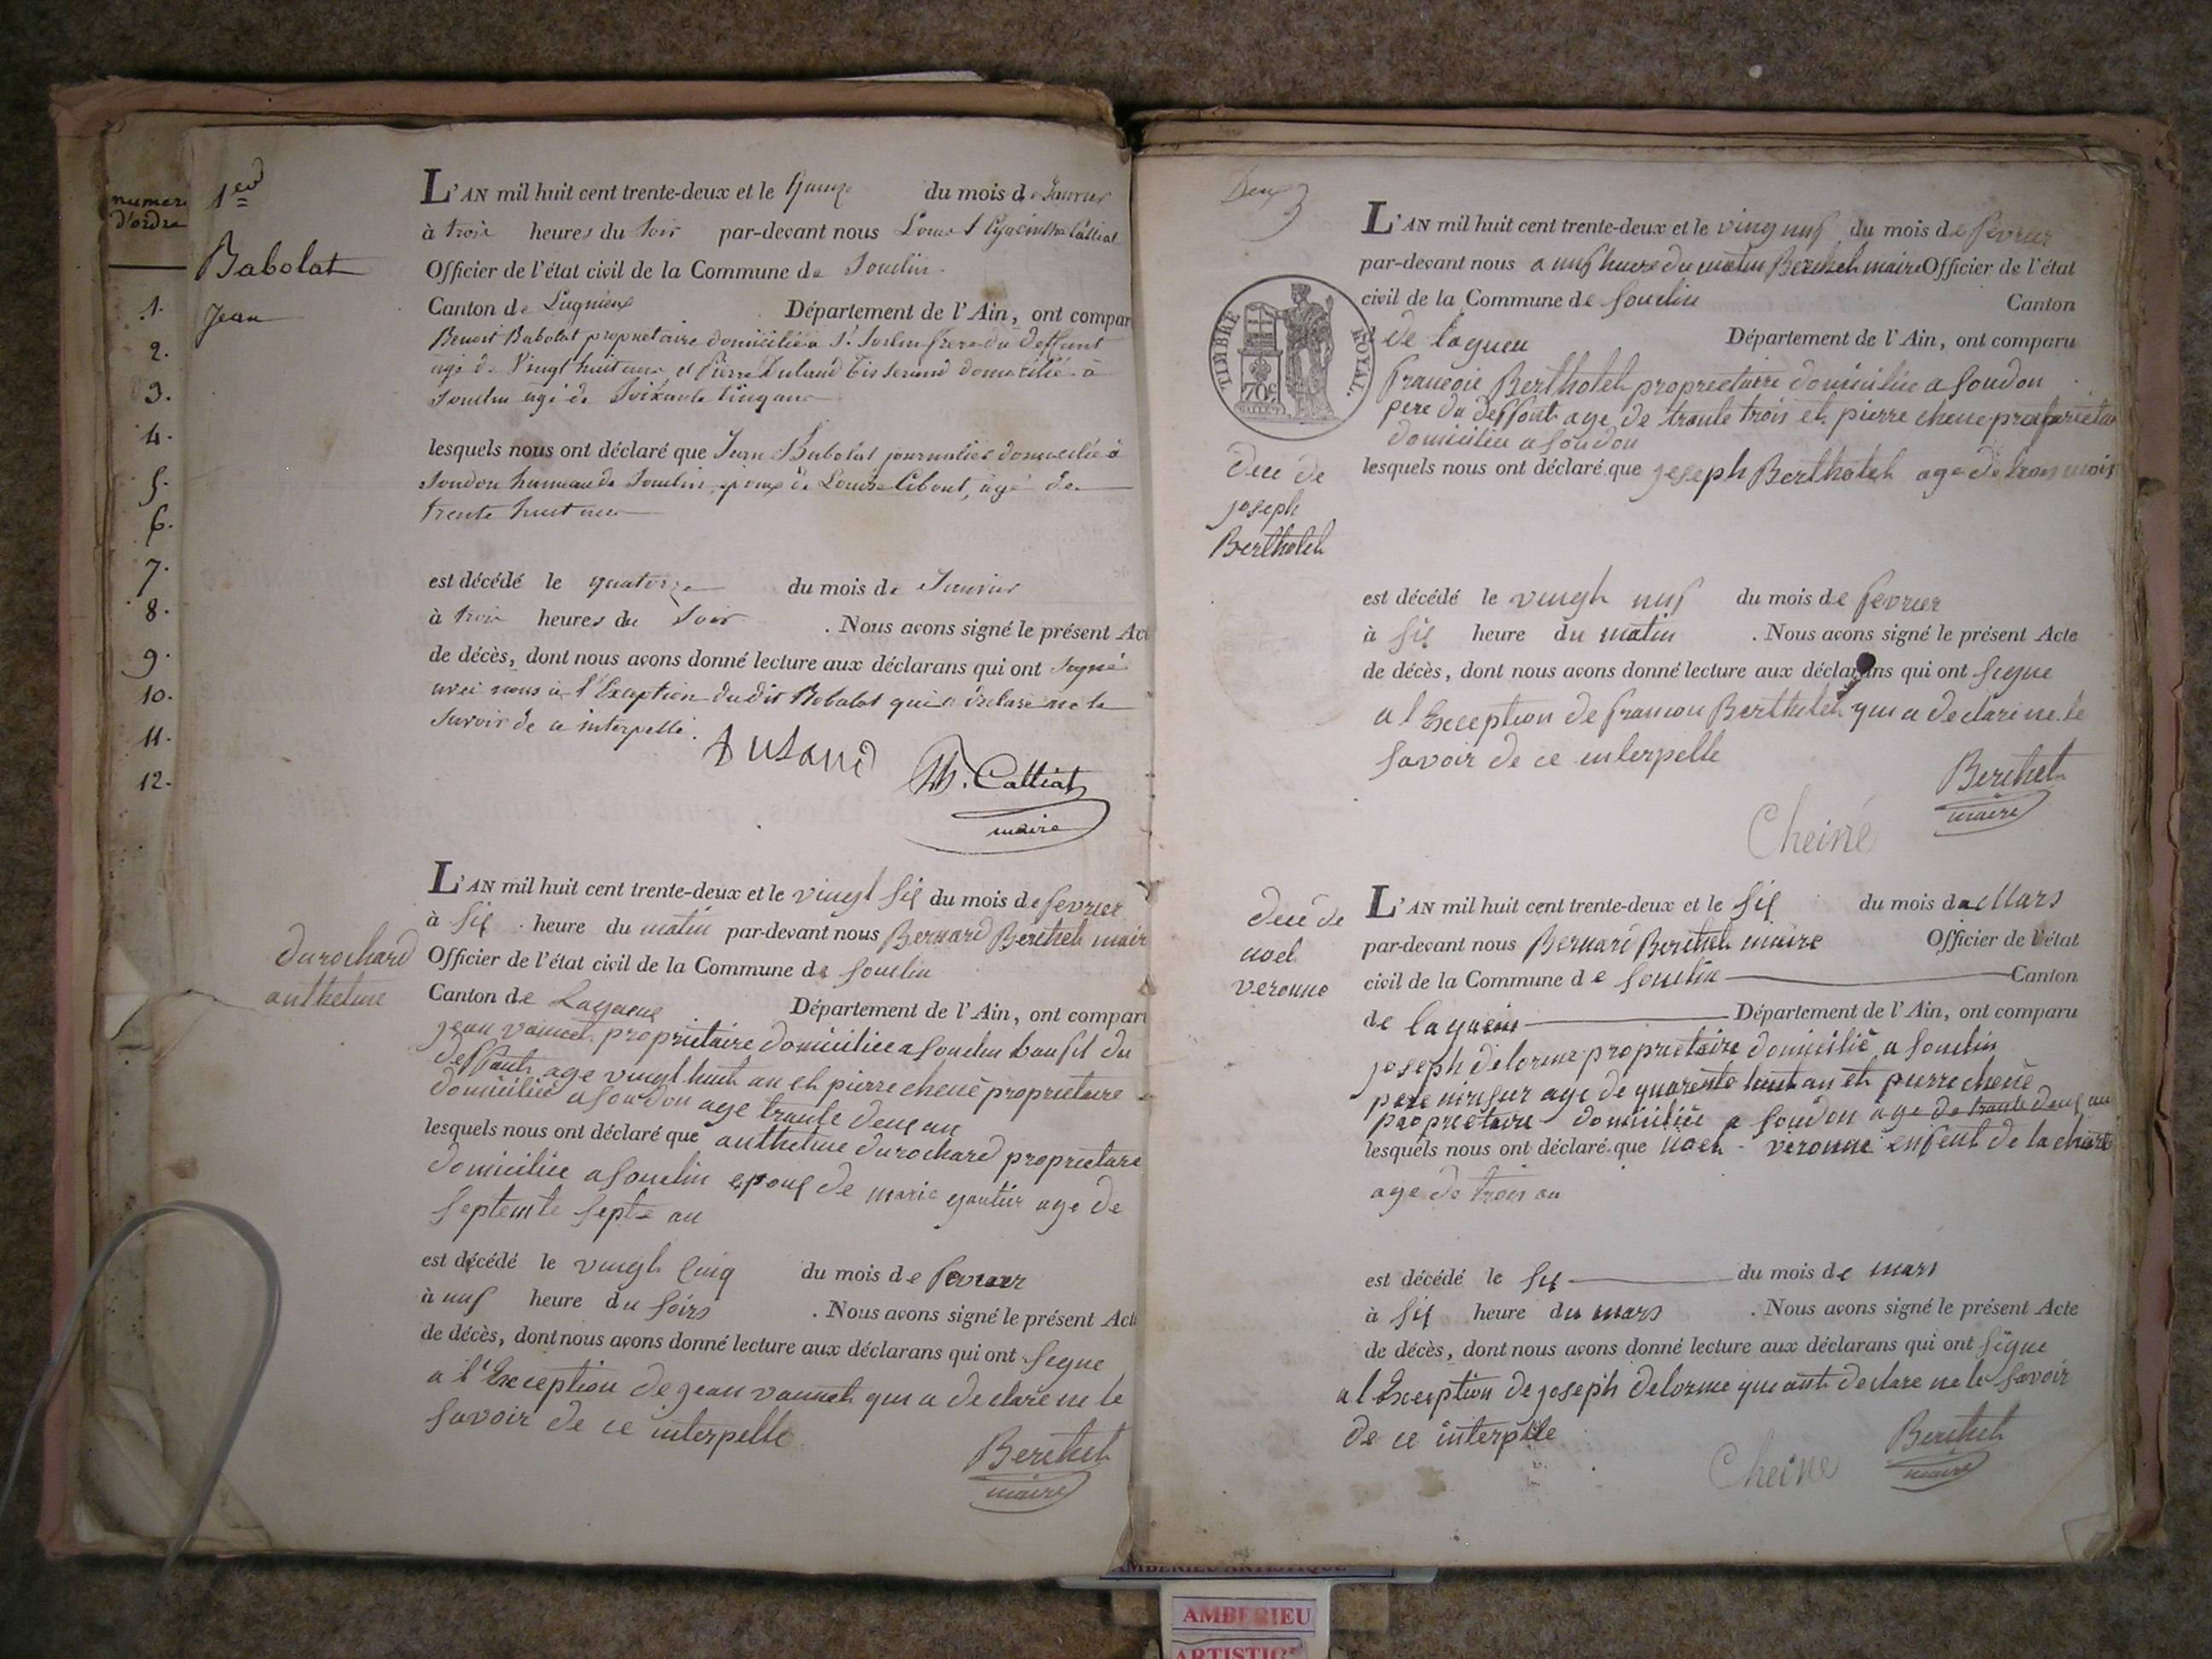 numero
d'ordre
1.
2.
3.
4.
5.
6.
7.
8.
9.
10.
11.
12.
1er
Babolat
Jean
L'AN mil huit cent trente-deux et le quinze du mois de Janvier
à trois heures du soir par-devant nous Louis Hyacinthe Calliat
Officier de l'état civil de la Commune de Souclin
Canton de Lagnieux Département de l'Ain, ont compar
Benoit Babolat propriétaire domicilié à St Sorlin frere du deffunt
agé de Vingt huit ans et Pierre Duland Tisserand domicilié à
Souclin agé de Soixante Cinq ans
lesquels nous ont déclaré que Jean Babolat journalier domicilié à
Soudon hameau de Souclin, époux de Louise Cibout, âgé de
trente huit ans
est décédé le quatorze du mois de Janvier
à trois heures du soir . Nous avons signé le présent Act
de décès, dont nous avons donné lecture aux déclarans qui ont signé
avec nous à l'Exception du dit Babolat qui a déclaré ne le
savoir de ce interpellé.
Duland
Calliat
maire
durochard
anthelme
L'AN mil huit cent trente-deux et le vingt six du mois de fevrier
à six heure du matin par-devant nous Bernard Berthet mair
Officier de l'état civil de la Commune de Souclin
Canton de Lagnieu Département de l'Ain, ont compar
jean vannet proprietaire domiciliee a souclin baufil du
deffant age vingt huit an et pierre chene proprietaire
domiciliee a soudon age trante deux an
lesquels nous ont déclaré que anthelme durochard proprietare
domiciliee a souclin epoux de marie gautier age de
septente septe an
est décédé le vingt cinq du mois de fevrier
à nuf heure du soirs . Nous avons signé le présent Act
de décès, dont nous avons donné lecture aux déclarans qui ont signe
a l'Exception de jean vannet qui a declare ne le
savoir de ce interpelle
Berthet
maire
Deux
L'AN mil huit cent trente-deux et le ving nuf du mois de fevrier
par-devant nous a nuf heure du matin Berthet maire Officier de l'état
civil de la Commune de souclin Canton
de lagnieu Département de l'Ain, ont comparu
TIMBRE ROYAL.
70c
francois Berthotet proprietaire domicilie a soudon
pere du deffont age de trante trois et pierre chene proprietaire
domicilie a soudon
lesquels nous ont déclaré que joseph Berthotet age de trois mois
dece de
joseph
Berthotet
est décédé le vingt nuf du mois de fevrier
à six heure du matin . Nous avons signé le présent Acte
de décès, dont nous avons donné lecture aux déclarans qui ont signe
a l'Exception de francoi Berthotet qui a declaré ne le
savoir de ce interpelle
Berthet
maire
Cheine
dece de
noel
veronne
L'AN mil huit cent trente-deux et le six du mois de Mars
par-devant nous Bernard Berthet maire Officier de l'état
civil de la Commune de souclin Canton
de lagnieu Département de l'Ain, ont comparu
joseph delorme proprietaire domicilié a souclin
pere nirisiur age de quarente huit an et pierre chene
proprietaire domiciliée a soudon age de trante deux an
lesquels nous ont déclaré que noel veronne enfent de la charité
age de trois an
est décédé le six du mois de mars
à six heure du mars . Nous avons signé le présent Acte
de décès, dont nous avons donné lecture aux déclarans qui ont signe
a l Exception de joseph delorme qui ant declare ne le savoir
de ce interpelle
Berthet
maire
Cheine
AMBERIEU ARTISTIQUE
AMBERIEU
ARTISTIQ